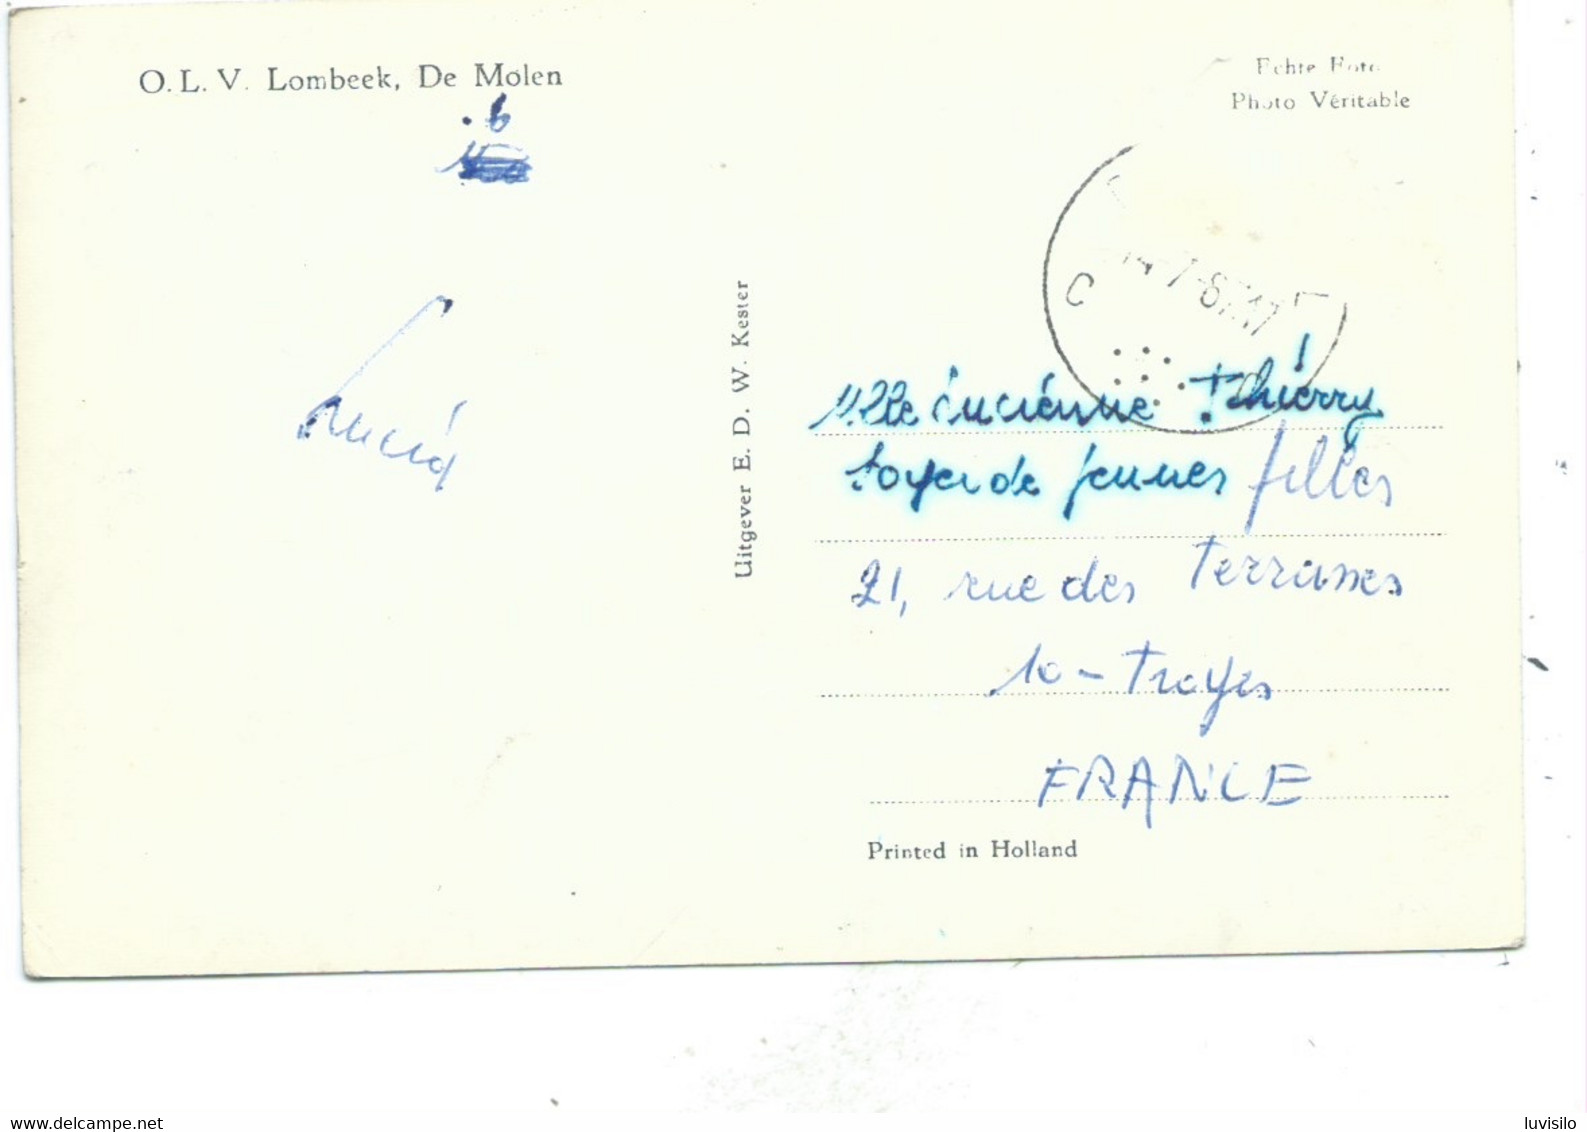 O. L. V. Lombeek, De Molen
Echte Foto
Photo Véritable
C
Lucia
Uitgever E. D. W. Kester
Mlle Lucienne Thiérry
foyer de jeunes filles
21, rue des Terrasses
10 - Troyes
FRANCE
Printed in Holland
www.delcampe.net
luvisilo